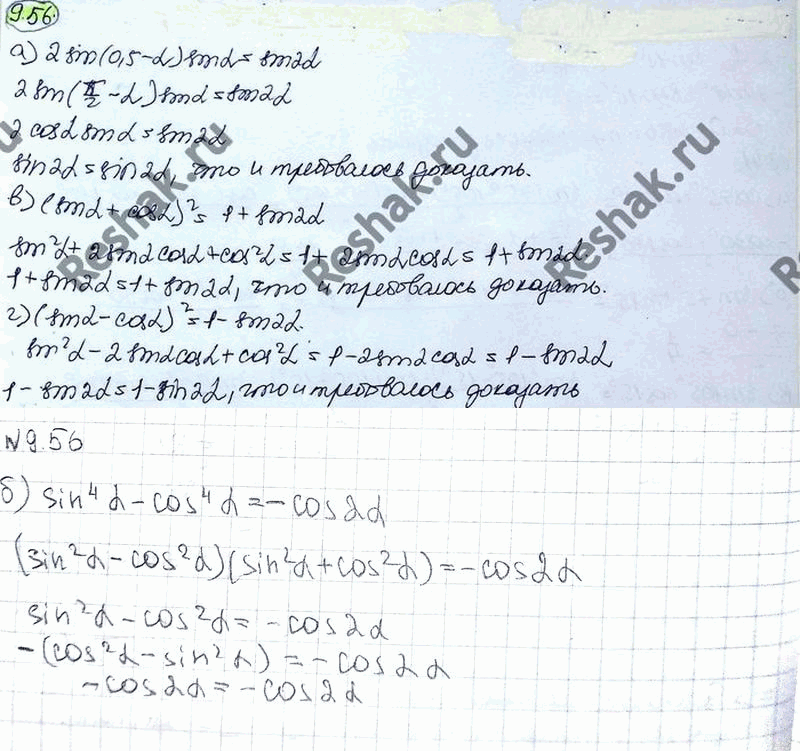 9.56.
а) 2 sin(0,5-α) sinα = sin2α
2 sin(π/2 - α) sinα = sin2α
2 cosα sinα = sin2α
sin2α = sin2α, что и требовалось доказать.
в) (sinα + cosα)² = 1 + sin2α
sin²α + 2sinα cosα + cos²α = 1 + 2sinα cosα = 1 + sin2α.
1 + sin2α = 1 + sin2α, что и требовалось доказать.
г) (sinα - cosα)² = 1 - sin2α.
sin²α - 2 sinα cosα + cos²α = 1 - 2sinα cosα = 1 - sin2α
1 - sin2α = 1 - sin2α, что и требовалось доказать
N 9.56
б) sin⁴α - cos⁴α = -cos2α
(sin²α - cos²α)(sin²α + cos²α) = -cos2α
sin²α - cos²α = -cos2α
-(cos²α - sin²α) = -cos2α
-cos2α = -cos2α
Reshak.ru
Reshak.ru
Reshak.ru